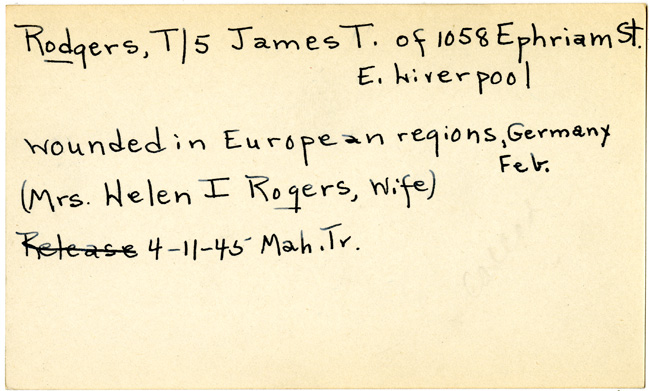 Rodgers, T/5 James T. of 1058 Ephriam St.
E. Liverpool
wounded in European regions, Germany
Feb.
(Mrs. Helen I Rogers, Wife)
Release 4-11-45 Mah. Tr.